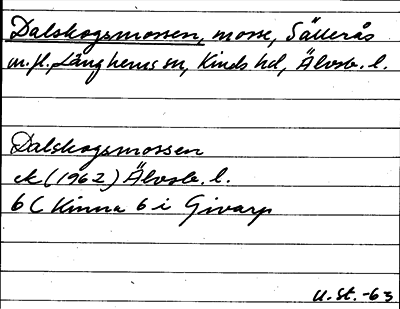 Dalskogsmossen, mosse, Sällerås
m.fl., Länghems sn, Kinds hd, Älvsb. l.
Dalskogsmossen
ek (1962) Älvsb. l.
6 C Kinna 6 i Givarp
U. St. -63